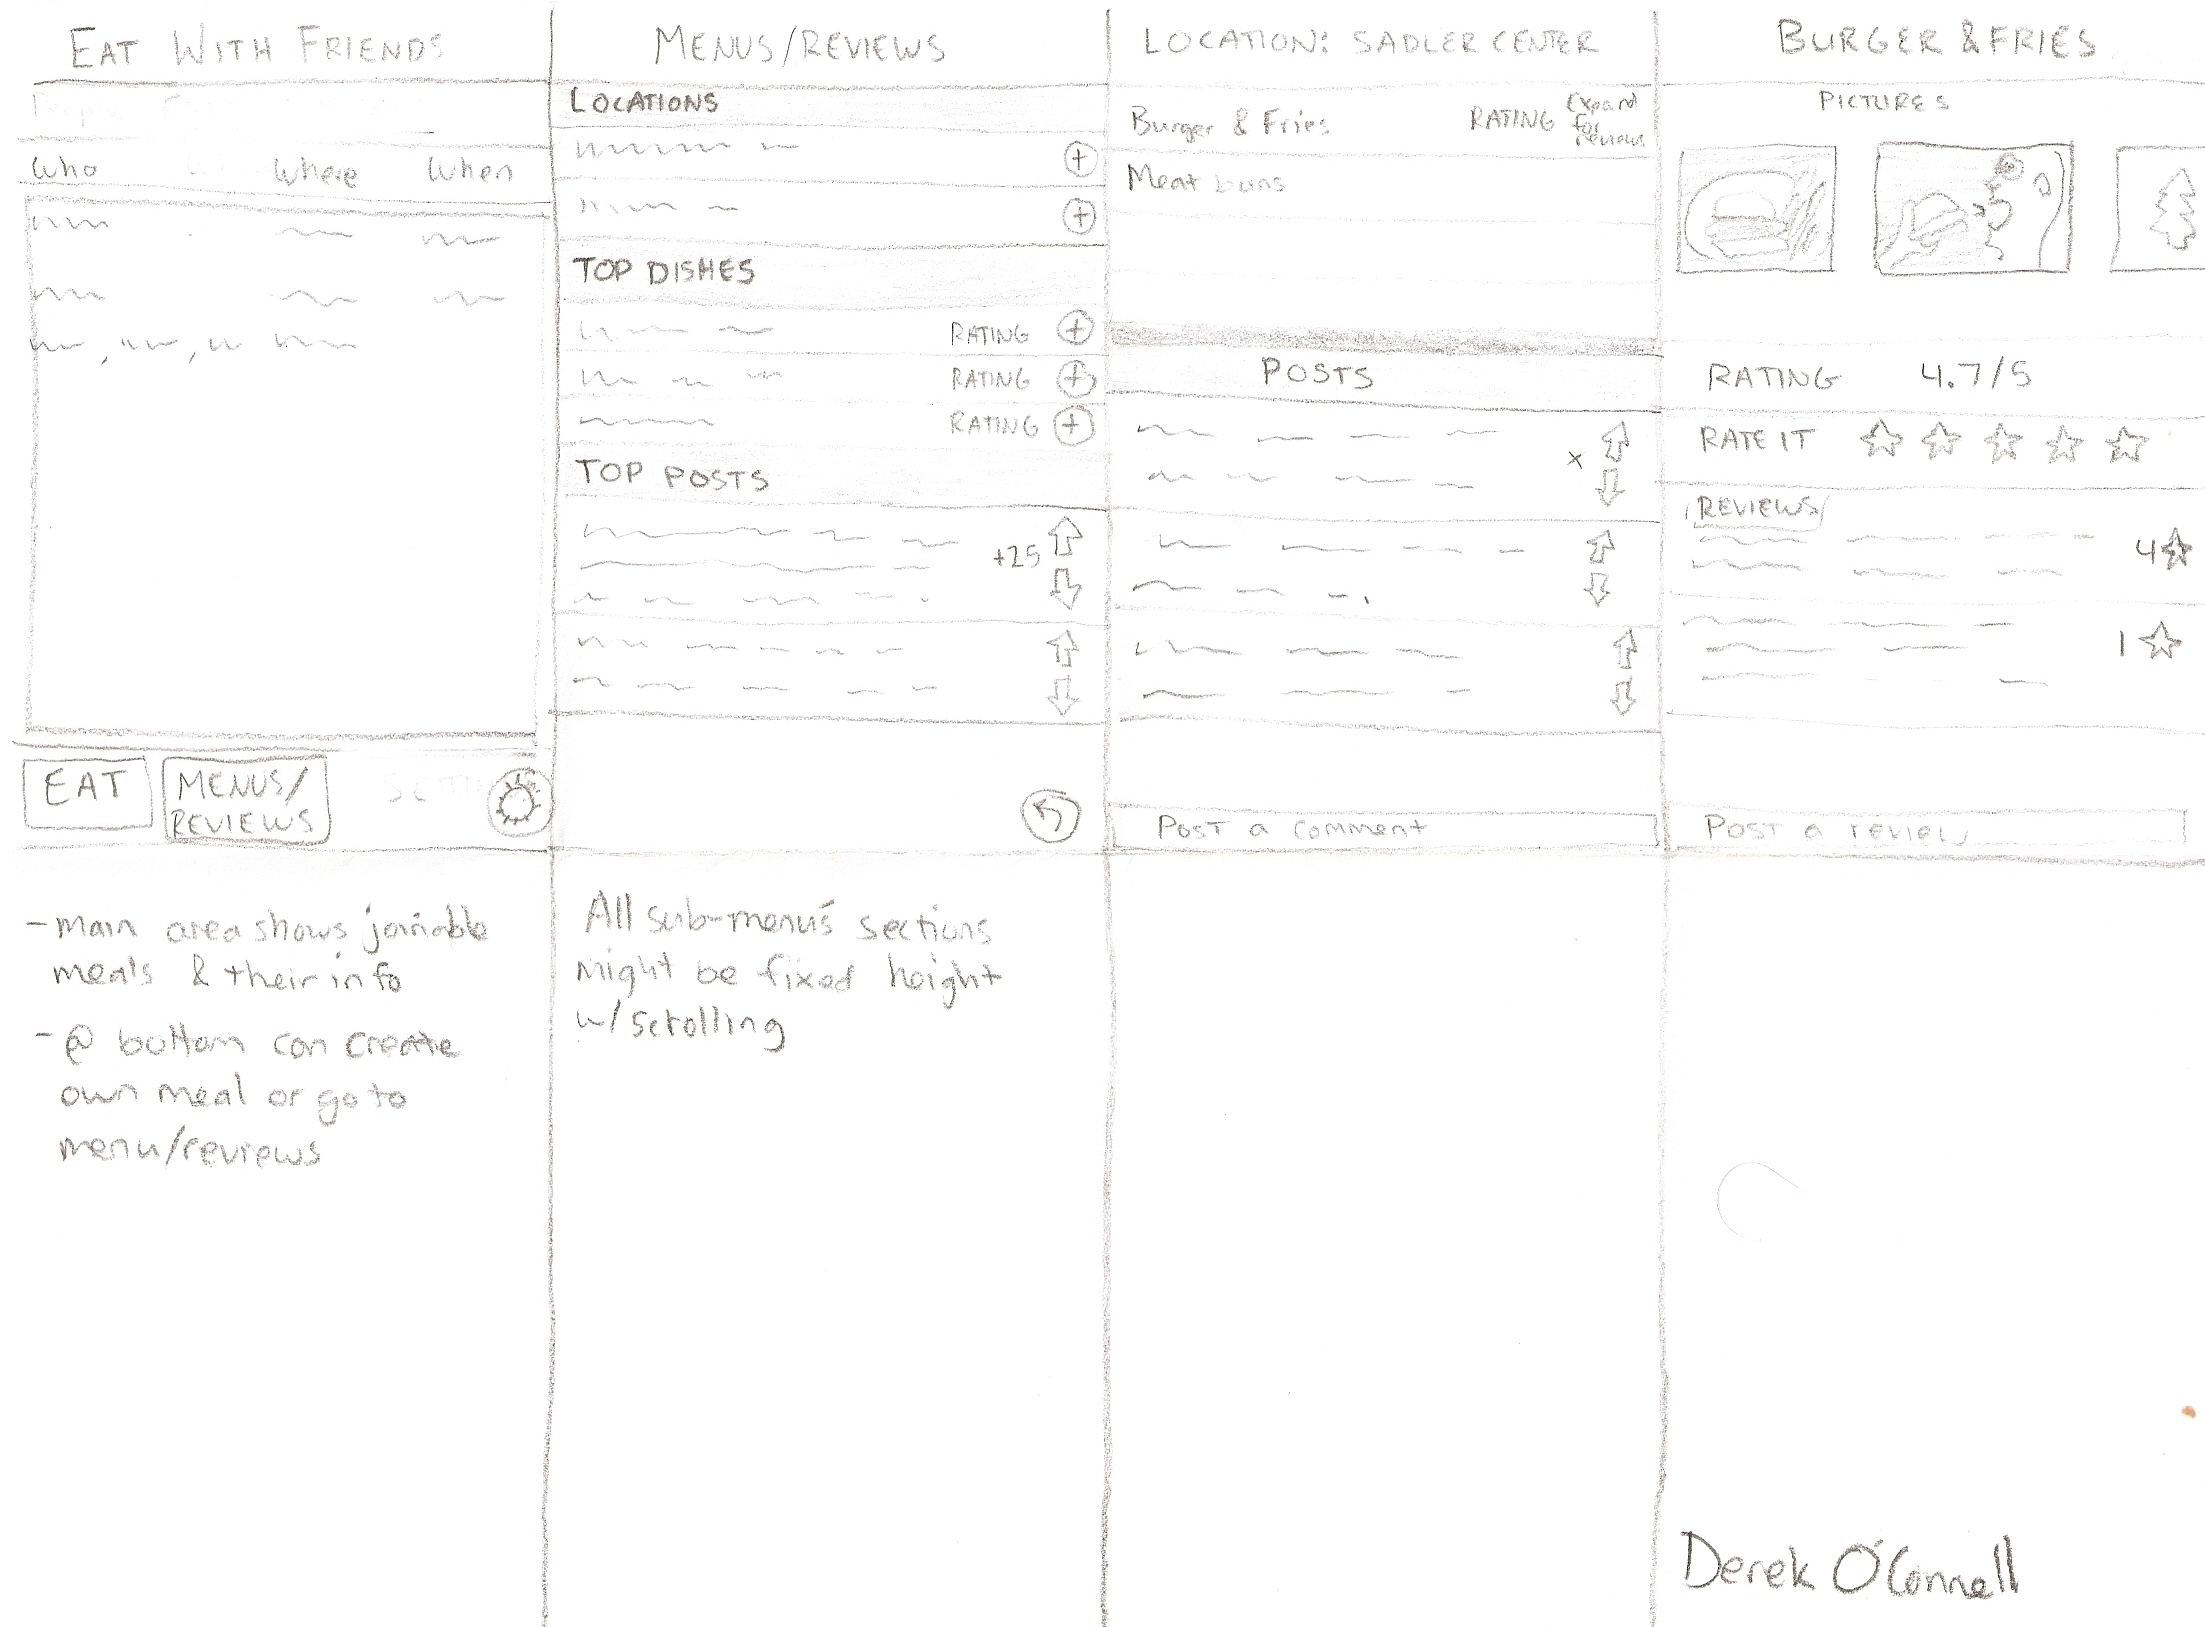 EAT WITH FRIENDS
Who Where When
EAT
MENUS/
REVIEWS
- main area shows joinable
meals & their info
- @ bottom can create
own meal or go to
menu/reviews
MENUS/REVIEWS
LOCATIONS
+
+
TOP DISHES
RATING +
RATING +
RATING +
TOP POSTS
+25
All sub-menu's sections
might be fixed height
w/ scrolling
LOCATION: SADLER CENTER
Burger & Fries RATING Expand
for
reviews
Meat buns
POSTS
x
Post a comment
BURGER & FRIES
PICTURES
RATING 4.7/5
RATE IT
REVIEWS
4
1
Post a review
Derek O'Connell